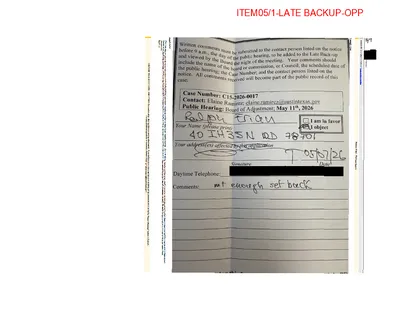 ITEM05/1-LATE BACKUP-OPP
Written comments must be submitted to the contact person listed on the notice
before 9 a.m. the day of the public hearing, to be added to the Late Back-up
and viewed by the Board the night of the meeting. Your comments should
include the name of the board or commission, or Council; the scheduled date of
the public hearing; the Case Number; and the contact person listed on the
notice. All comments received will become part of the public record of this
case.
Case Number: C15-2026-0017
Contact: Elaine Ramirez; elaine.ramirez@austintexas.gov
Public Hearing: Board of Adjustment; May 11th, 2026
Ralph
I am in favor
I object
Your Name (please print)
40 IH35N 78701
Your address(es) affected by this application
05/07/26
Signature Date
Daytime Telephone:
Comments: not enough set back